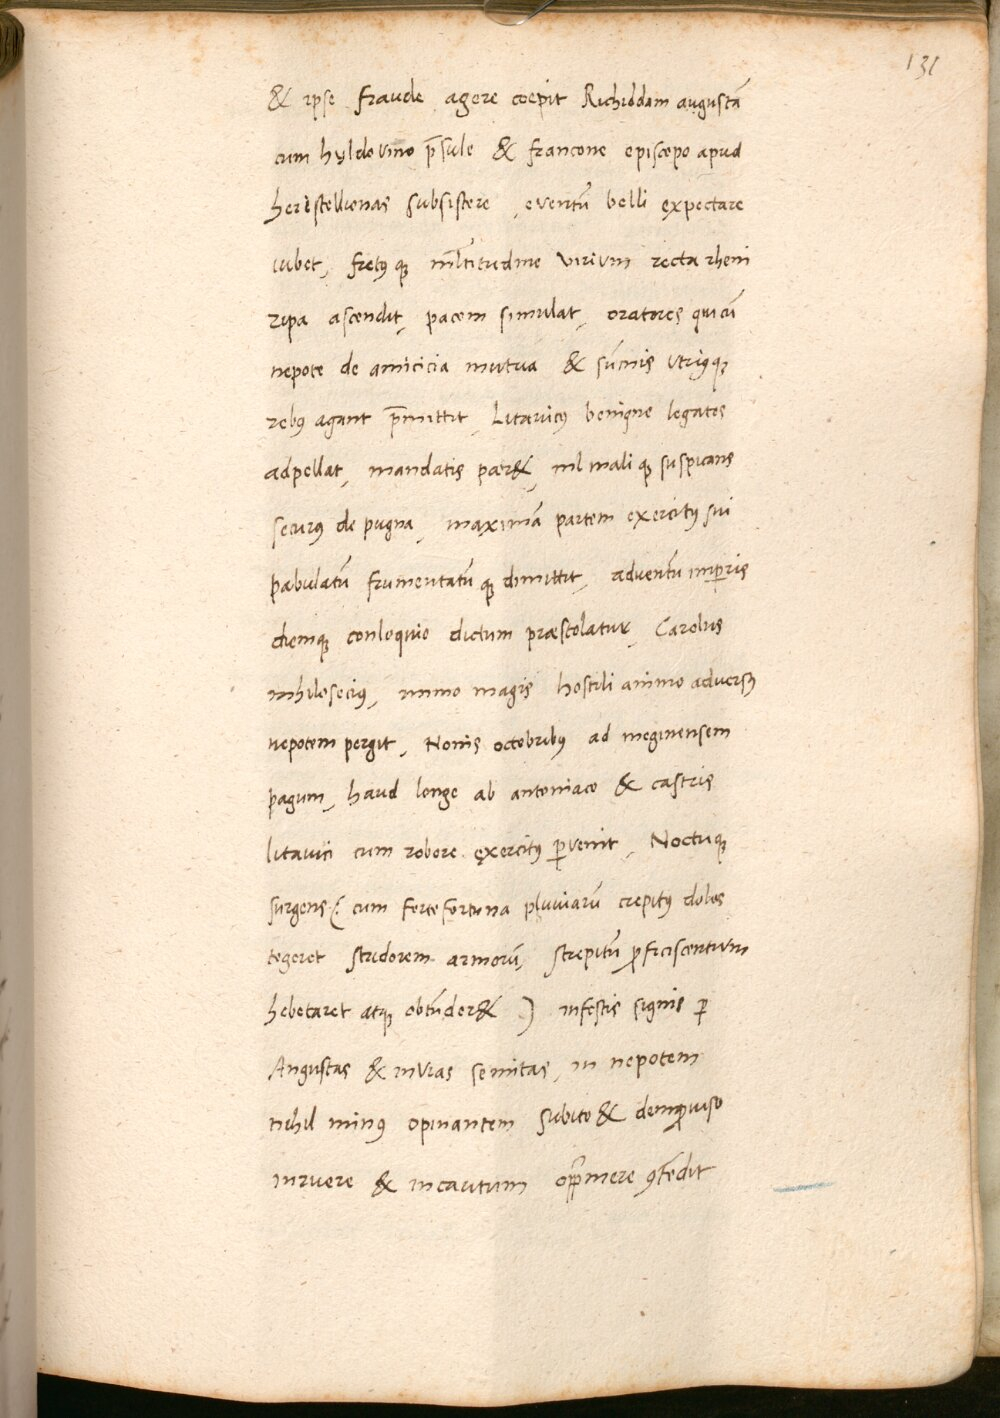 131
& ipse fraude agere coepit Richiddam augustā
cum hyldovino p̄sule & francone episcopo apud
heristellienas subsistere, eventū belli ęxpectare
iubet, fretꝰ qꝫ ml̄titudine virium recta rheni
ripa ascendit, pacem simulat, oratores qui cū
nepote de amicicia mutua & sūmis utriꝰqꝫ
rebꝰ agant p̄mittit, Litavicꝰ benigne legatos
adpellat, mandatis paer&, nil mali qꝫ suspicans
securꝰ de pugna, maximā partem exercitꝰ sui
pabulatū frumentatū qꝫ dimittit, adventū imꝑris
diemqꝫ conloquio dictum præstolatur, Carolus
nihilosecius, immo magis hostili animo adversꝰ
nepotem pergit, Nonis octobribꝰ ad meginensem
pagum, haud longe ab antoniaco & castris
litavici cum robore ęxercitꝰ ꝑvenit, Noctuqꝫ
surgens (cum forte fortuna pluviarū crepitꝰ dolos
tegeret stridorem armorū, strepitū ꝓficiscentium
hebetaret atqꝫ obtūder& ) infestis signis ꝑ
Angustas & invias semitas, in nepotem
nihil minꝰ opinantem subito & demꝓviso
inruere & incautum opp̄mere ꝯtēdit